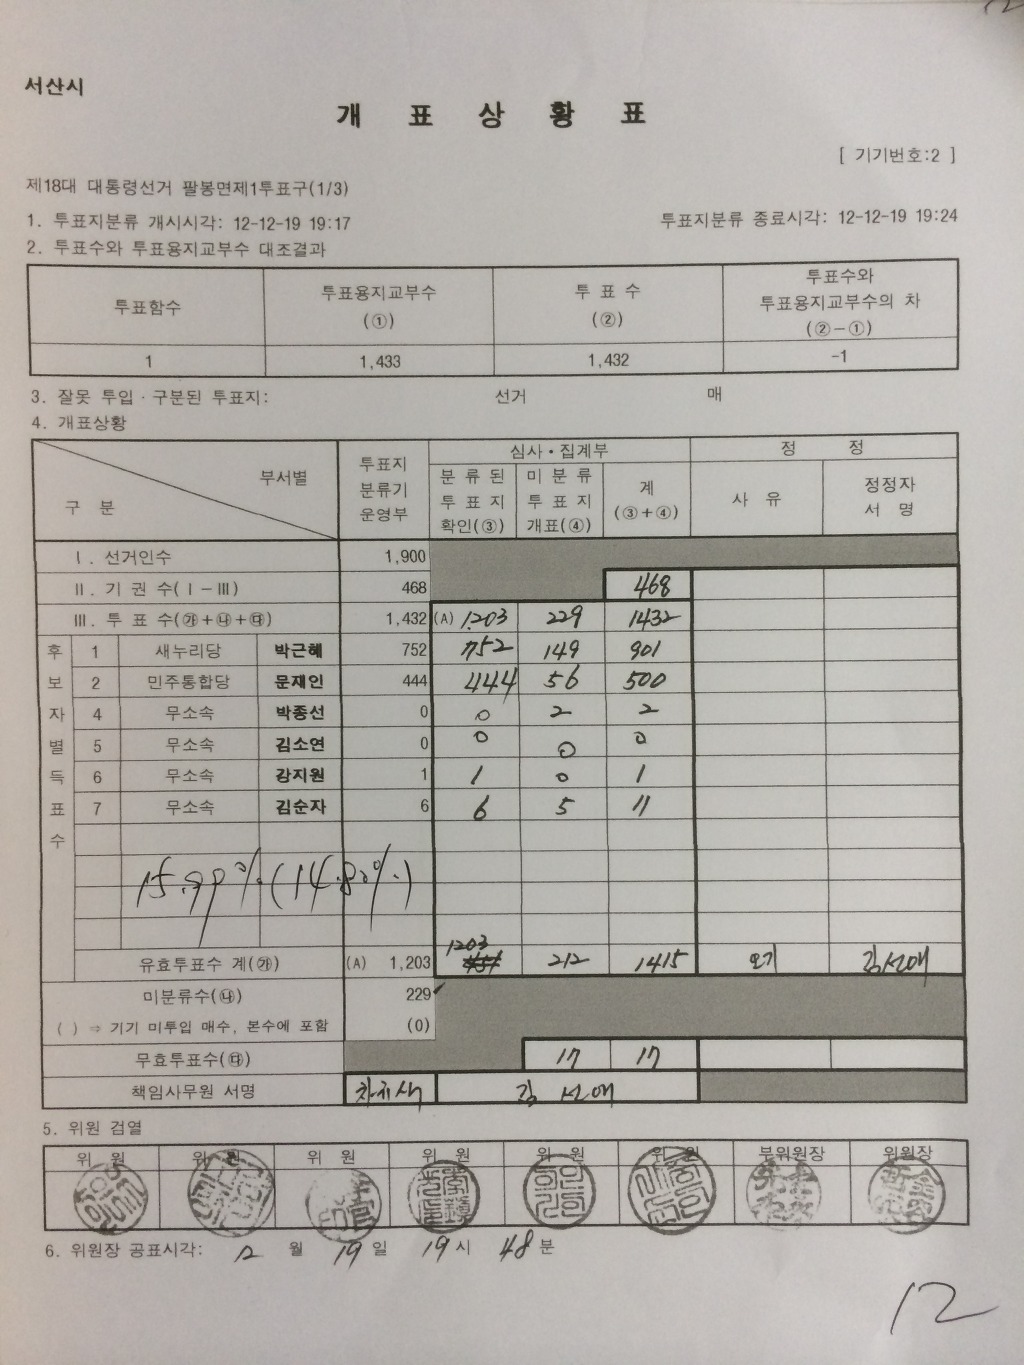 12
서산시
개 표 상 황 표
[ 기기번호:2 ]
제18대 대통령선거 팔봉면제1투표구(1/3)
1. 투표지분류 개시시각: 12-12-19 19:17 투표지분류 종료시각: 12-12-19 19:24
2. 투표수와 투표용지교부수 대조결과
투표함수 투표용지교부수 (①) 투 표 수 (②) 투표수와 투표용지교부수의 차 (②-①)
1 1,433 1,432 -1
3. 잘못 투입·구분된 투표지: 선거 매
4. 개표상황
부서별 구 분 투표지 분류기 운영부 심사·집계부 정 정
분 류 된 투 표 지 확인(③) 미 분 류 투 표 지 개표(④) 계 (③+④) 사 유 정정자 서 명
Ⅰ. 선거인수 1,900
Ⅱ. 기 권 수(Ⅰ-Ⅲ) 468 468
Ⅲ. 투 표 수(㉮+㉯+㉰) 1,432 (A) 1203 229 1432
후보자별득표수
1 새누리당 박근혜 752 752 149 901
2 민주통합당 문재인 444 444 56 500
4 무소속 박종선 0 0 2 2
5 무소속 김소연 0 0 0 0
6 무소속 강지원 1 1 0 1
7 무소속 김순자 6 6 5 11
15.99% (14.80%)
1203
유효투표수 계(㉮) (A) 1,203 212 1415 오기 김선애
미분류수(㉯) 229
( ) ⇒ 기기 미투입 매수, 본수에 포함 (0)
무효투표수(㉰) 17 17
책임사무원 서명 김 선애
5. 위원 검열
위 원 위 원 위 원 위 원 위 원 위 원 부위원장 위원장
6. 위원장 공표시각: 12 월 19 일 19 시 48 분
12